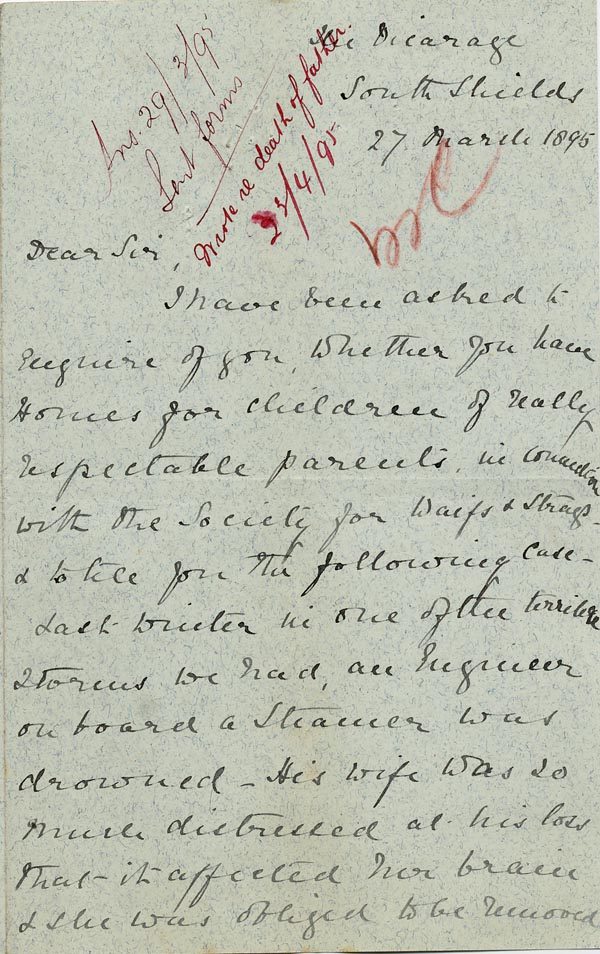 The Vicarage
South Shields
27 March 1895
Ans. 29/3/95
Sent forms
Wrote re death of father.
23/4/95
Dear Sir,
I have been asked to
Enquire of you, whether you have
Homes for children of really
respectable parents, in connection
with the Society for Waifs & Strays -
& to tell you the following case -
Last winter in one of the terrible
storms we had, an Engineer
on board a Steamer was
drowned - His wife was so
much distressed at his loss
that it affected her brain
& she was obliged to be removed